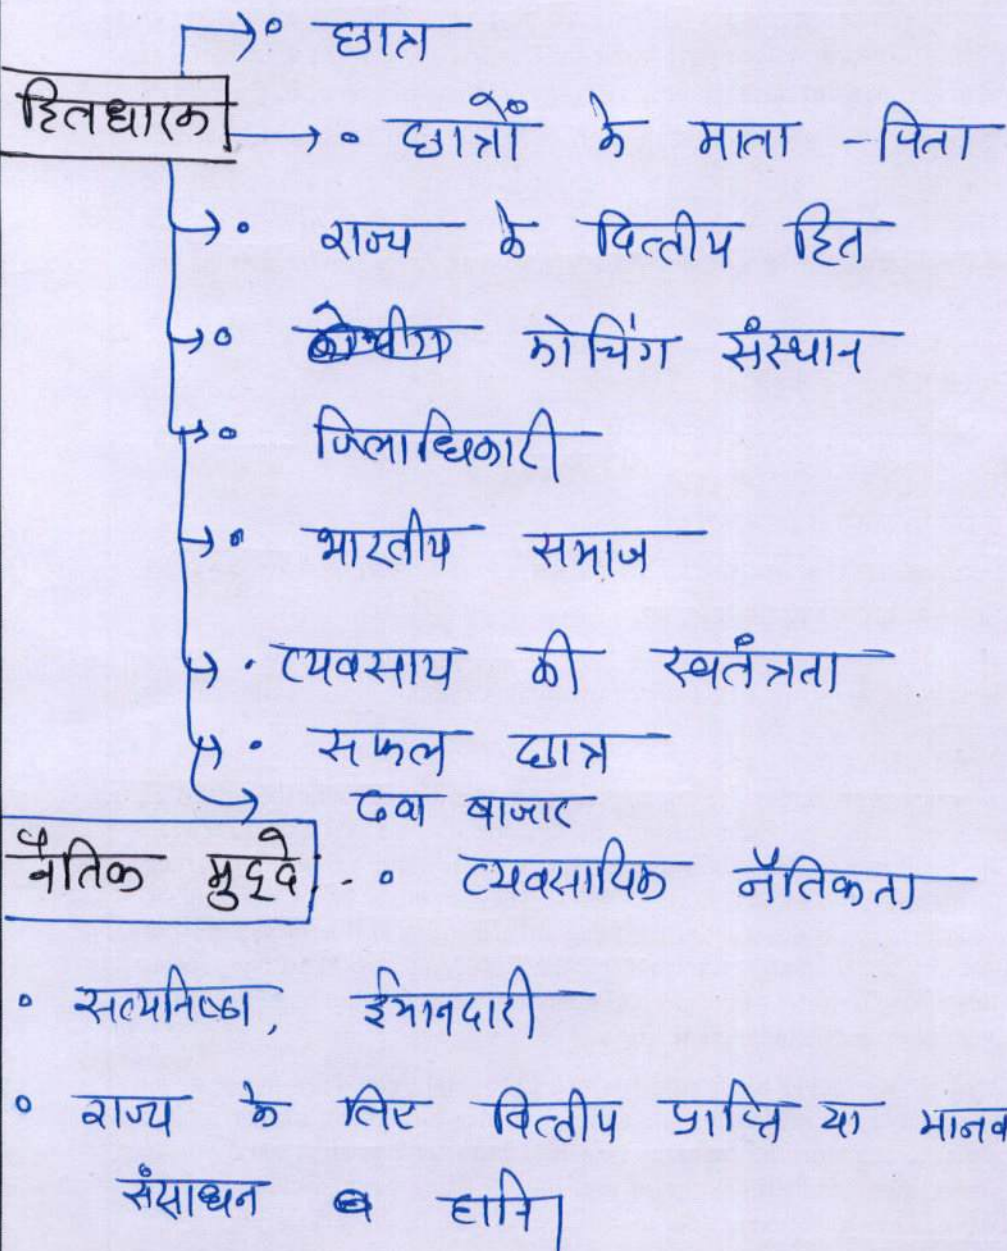 छात्र
हितधारक
छात्रों के माता - पिता
राज्य के वित्तीय हित
कोचिंग संस्थान
जिलाधिकारी
भारतीय समाज
व्यवसाय की स्वतंत्रता
सफल छात्र
दवा बाजार
नैतिक मुद्दे - व्यवसायिक नैतिकता
सत्यनिष्ठा, ईमानदारी
राज्य के लिए वित्तीय प्राप्ति या मानव
संसाधन हानि।